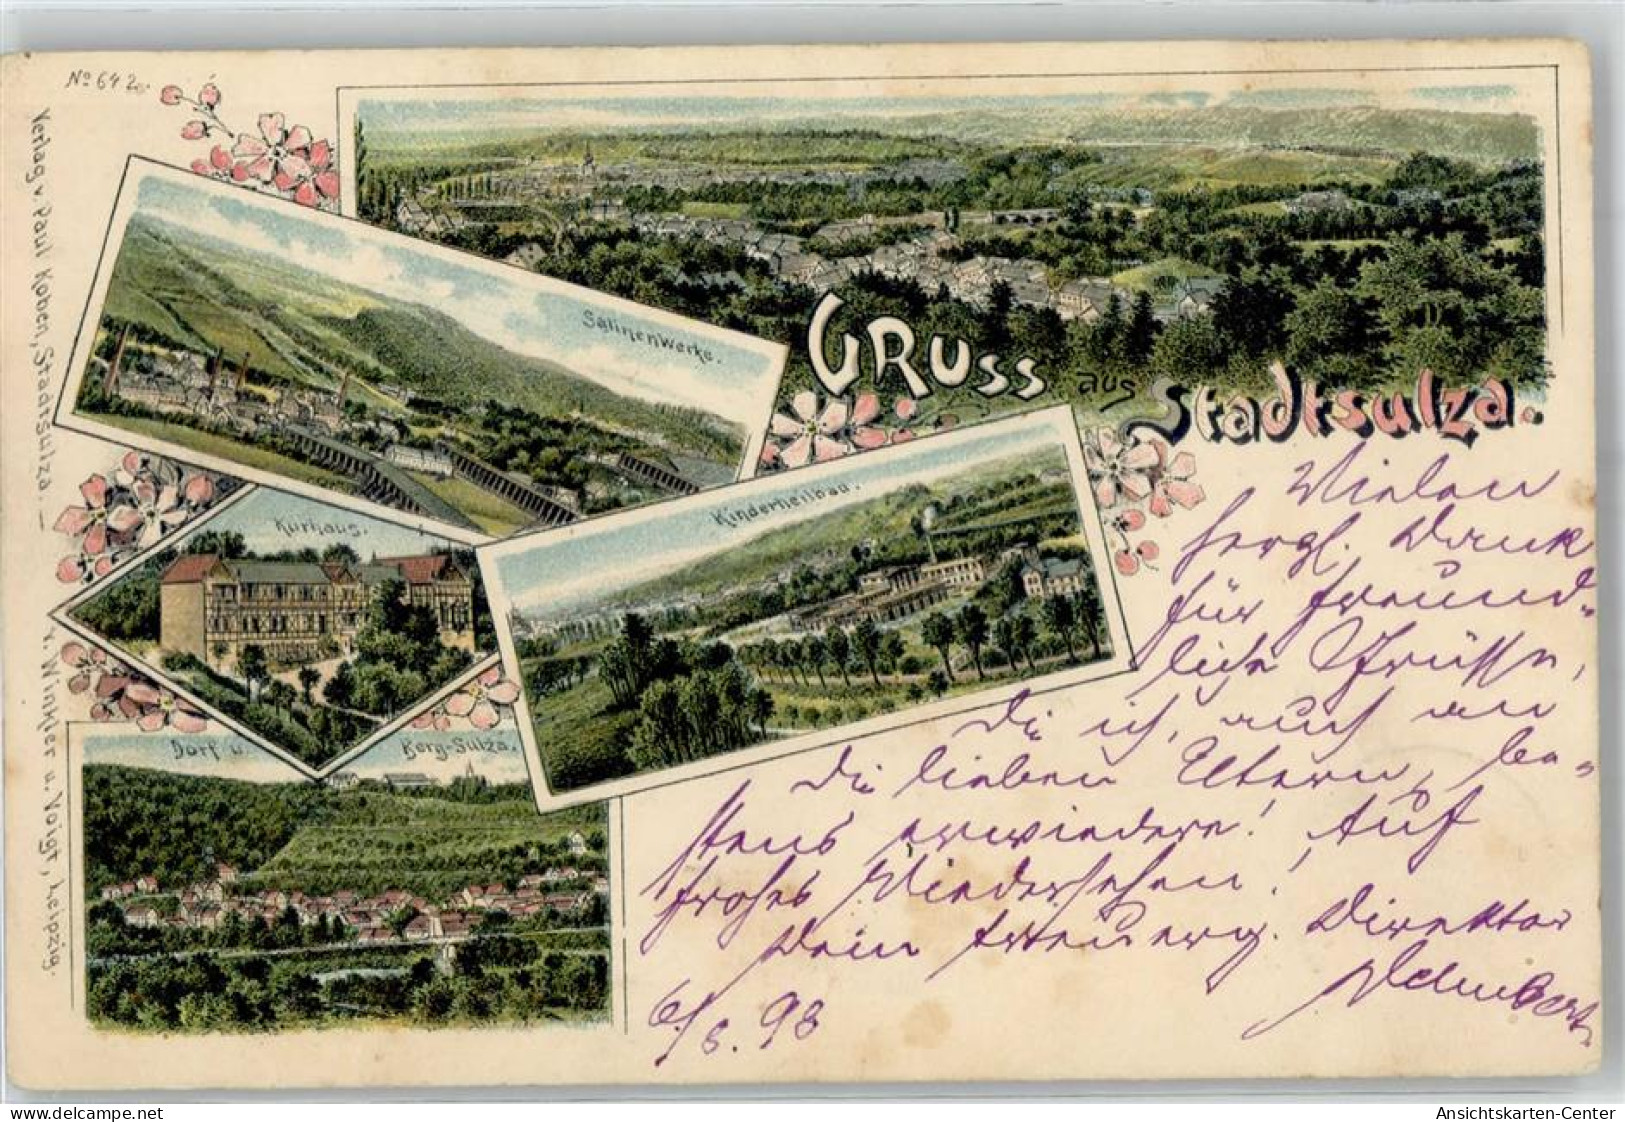 No 642
Verlag v. Paul Koben, Stadtsulza. —
v. Winkler u. Voigt, Leipzig.
Salinenwerke.
GRUSS aus Stadtsulza.
Kurhaus.
Kinderheilbad.
Dorf u. Berg-Sulza.
Vielen
hergl. Dank
für freund-
liche Grüsse,
die ich, auch an
die lieben Eltern, be-
stens erwiedere! Auf
frohes Wiedersehen!
Dein Direktor
6/8. 98
Ansichtskarten-Center